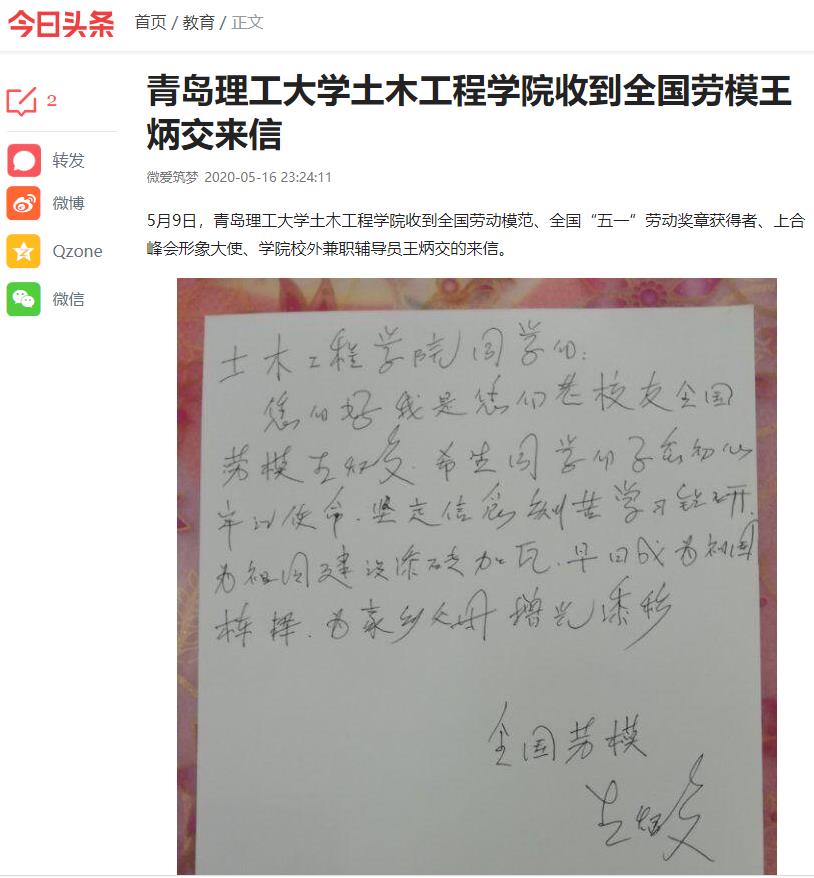 今日头条
首页 / 教育 / 正文
2
转发
微博
Qzone
微信
青岛理工大学土木工程学院收到全国劳模王
炳交来信
微爱筑梦 2020-05-16 23:24:11
5月9日，青岛理工大学土木工程学院收到全国劳动模范、全国“五一”劳动奖章获得者、上合
峰会形象大使、学院校外兼职辅导员王炳交的来信。
土木工程学院同学们：
您们好我是您们老校友全国
劳模王炳交.希望同学们不忘初心
牢记使命.坚定信念刻苦学习钻研.
为祖国建设添砖加瓦.早日成为祖国
栋择.为家乡父母增光添彩
全国劳模
王炳交